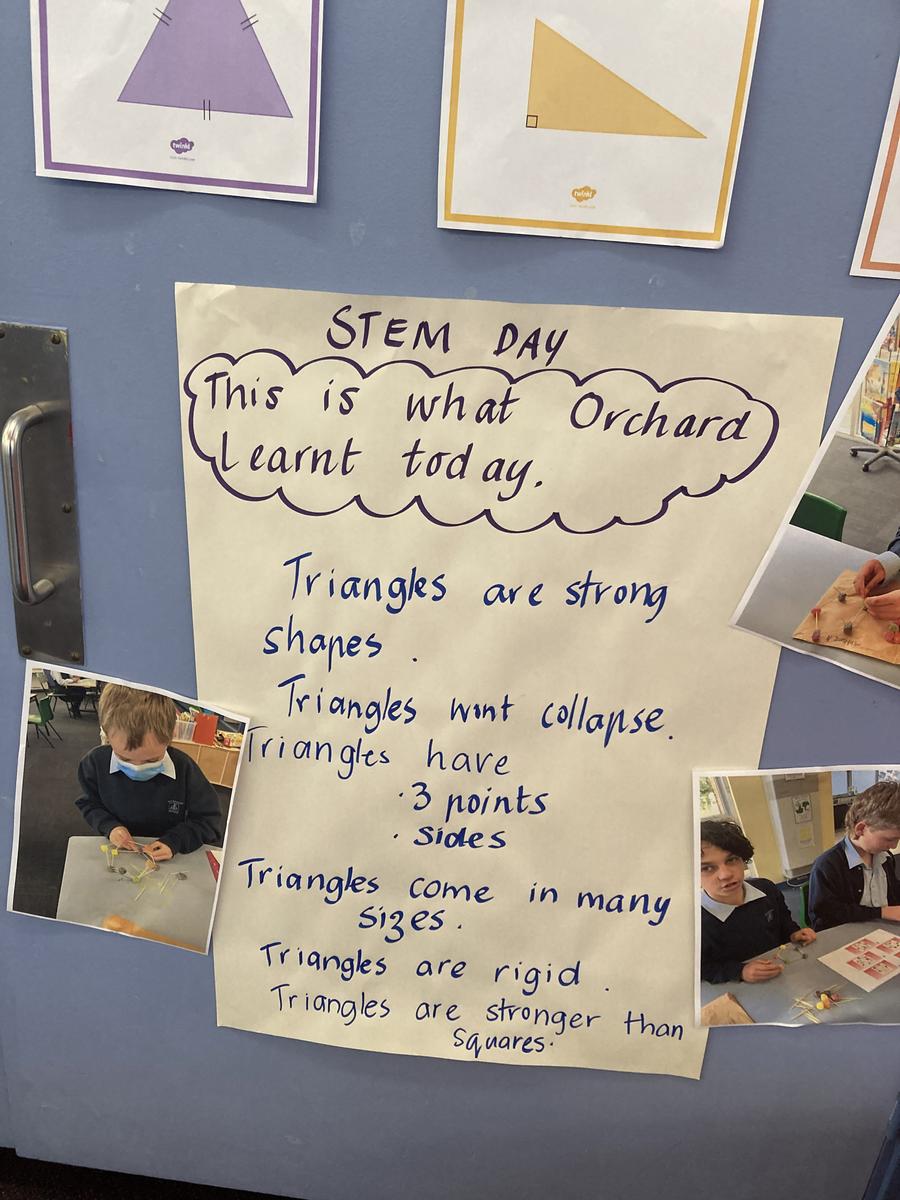 twinkl
twinkl
STEM DAY
This is what Orchard
Learnt today.
Triangles are strong
shapes.
Triangles wont collapse.
Triangles have
· 3 points
· sides
Triangles come in many
sizes.
Triangles are rigid.
Triangles are stronger than
squares.